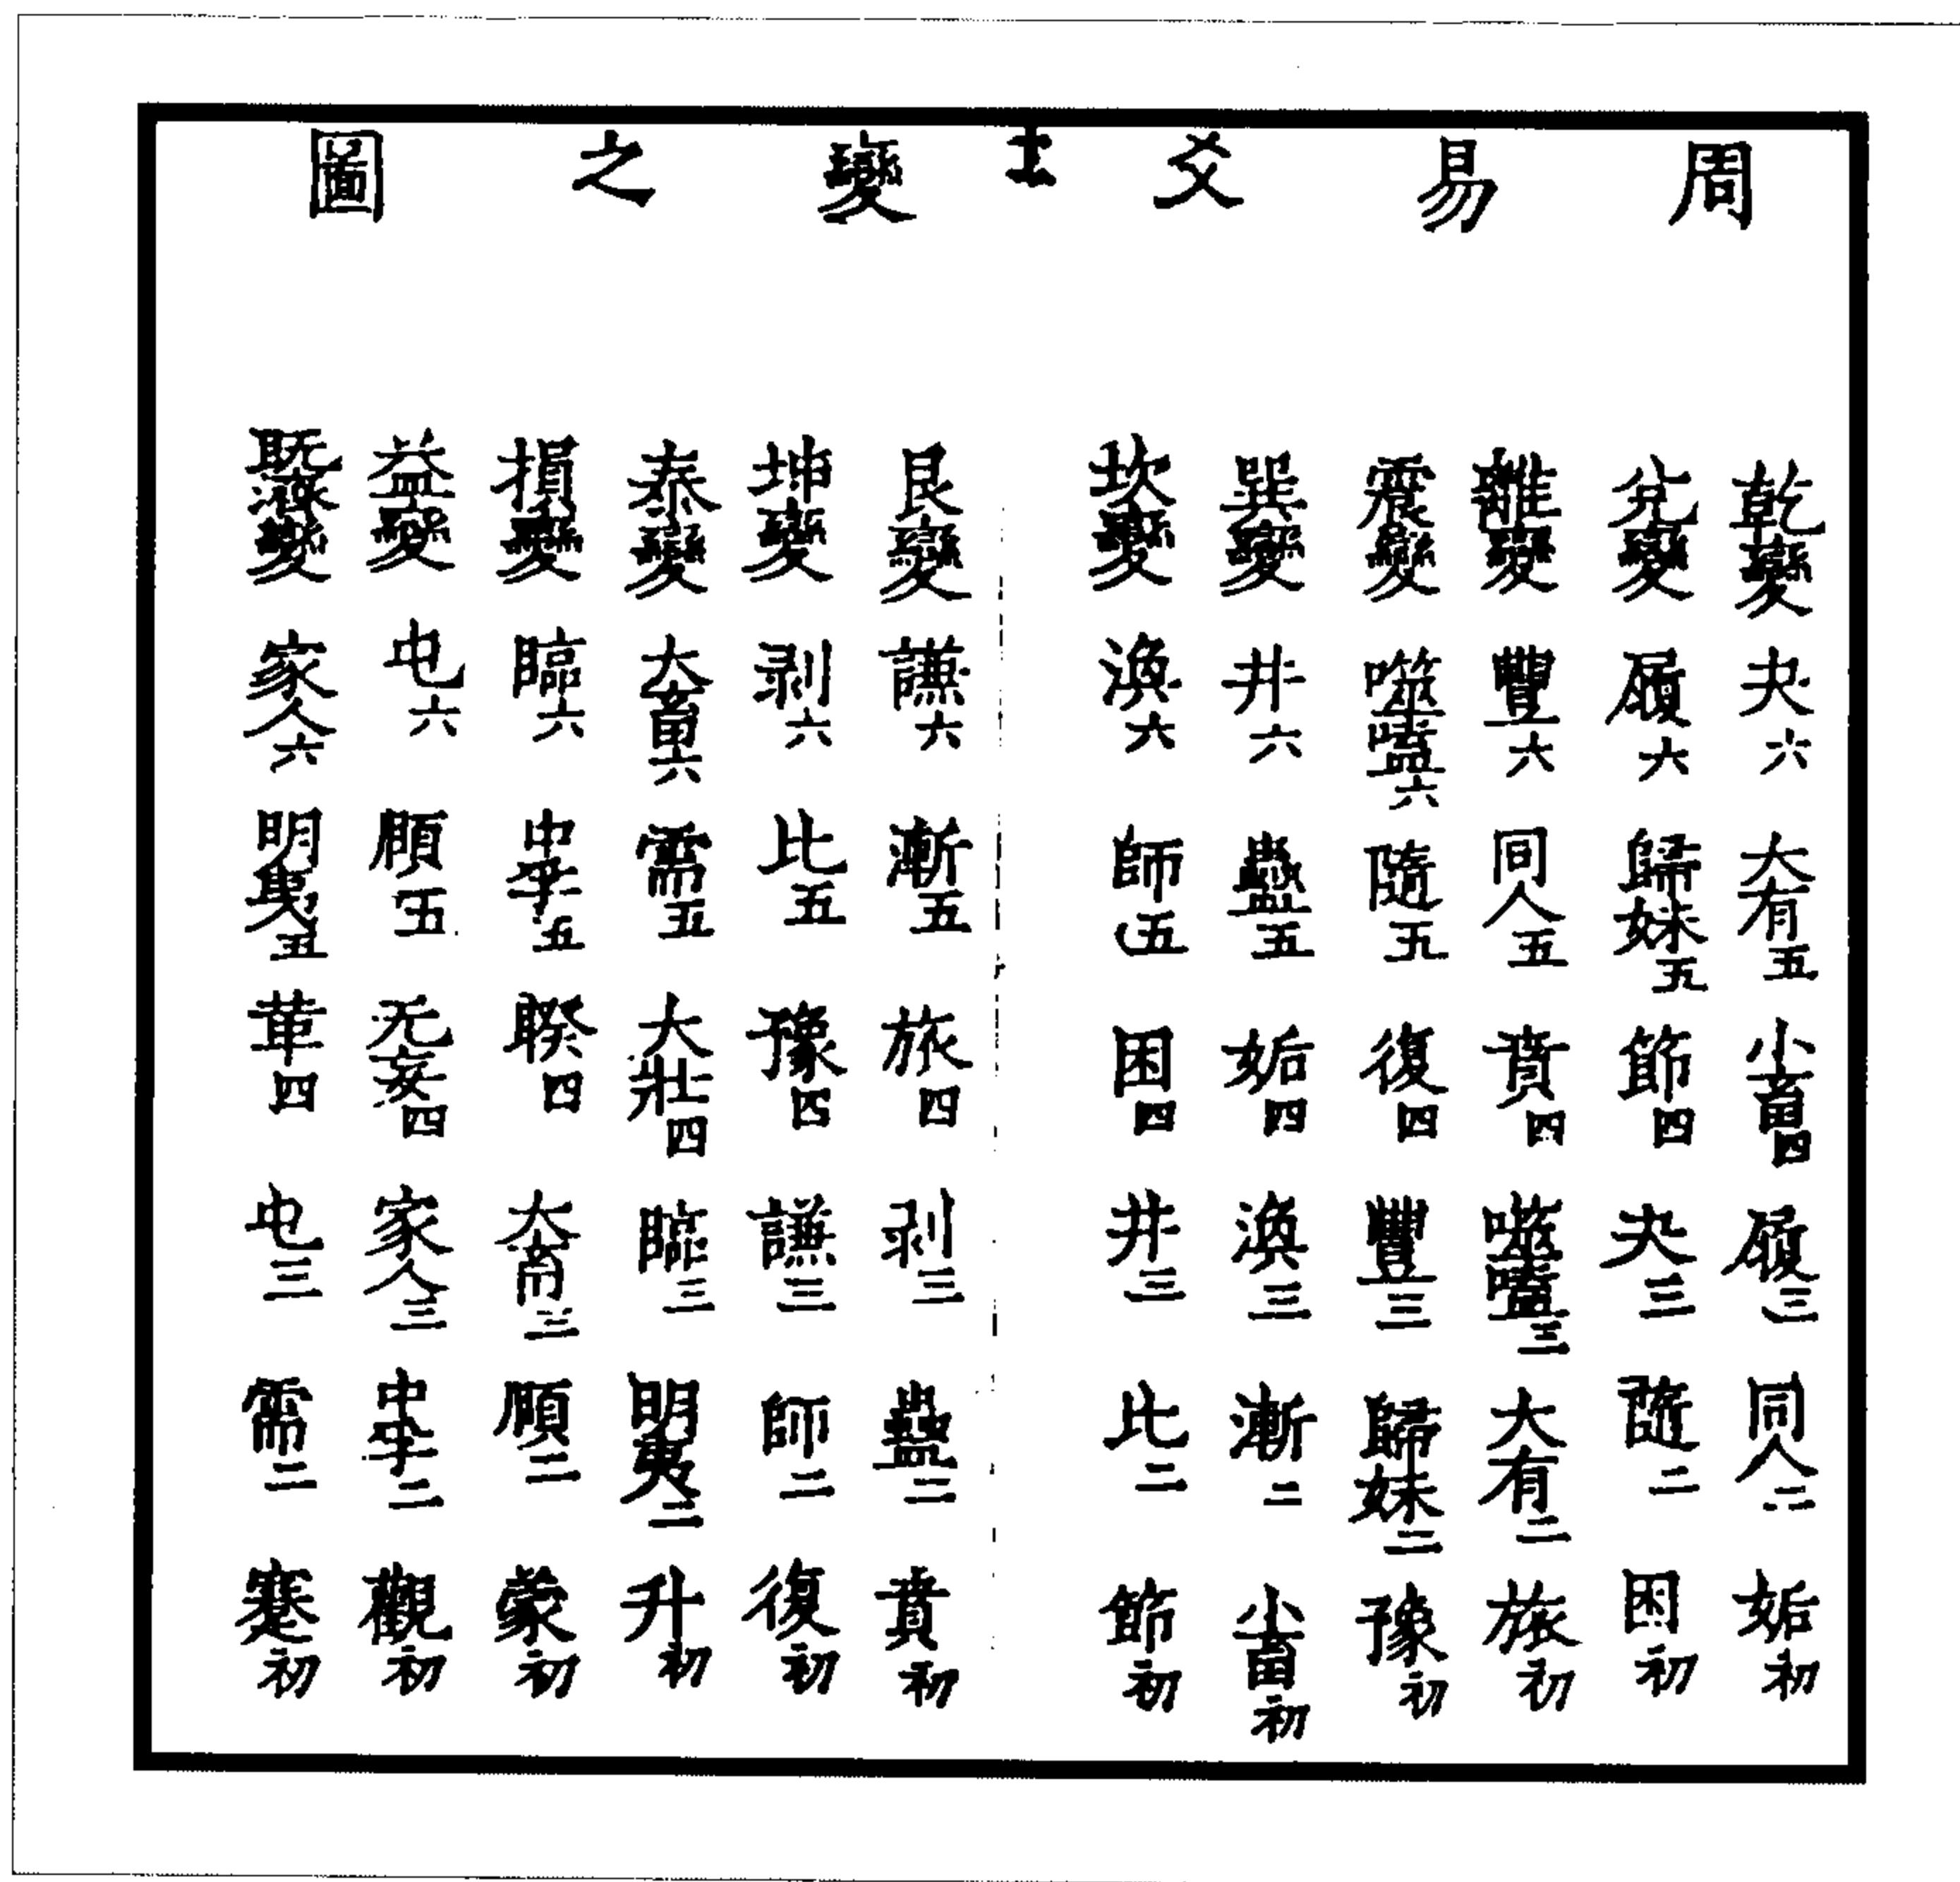 周易爻變之圖
乾變 夬六 大有五 小畜四 履三 同人二 姤初
兌變 履六 歸妹五 節四 夬三 隨二 困初
離變 豐六 同人五 賁四 噬嗑三 大有二 旅初
震變 噬嗑六 隨五 復四 豐三 歸妹二 豫初
巽變 井六 蠱五 姤四 渙三 漸二 小畜初
坎變 渙六 師五 困四 井三 比二 節初
艮變 謙六 漸五 旅四 剥三 蠱二 賁初
坤變 剥六 比五 豫四 謙三 師二 復初
泰變 大畜六 需五 大壯四 臨三 明夷二 升初
損變 臨六 中孚五 睽四 大畜三 頤二 蒙初
益變 屯六 頤五 无妄四 家人三 中孚二 觀初
既濟變 家人六 明夷五 革四 屯三 需二 蹇初